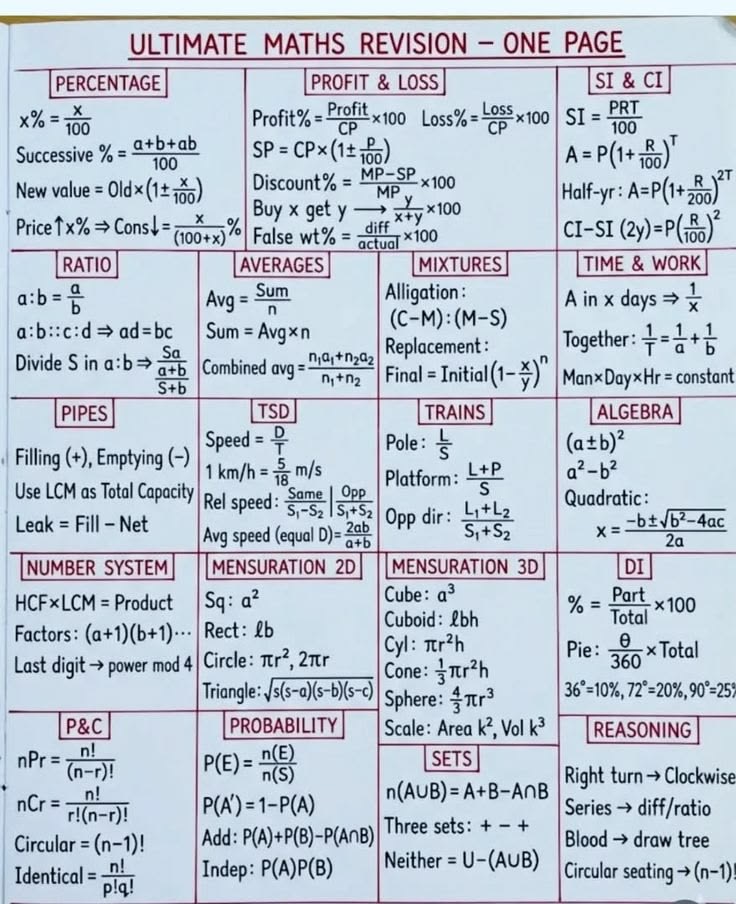 ULTIMATE MATHS REVISION – ONE PAGE
PERCENTAGE
x% = x/100
Successive % = a+b+ab/100
New value = Old×(1±x/100)
Price↑x% ⇒ Cons↓= x/(100+x)%
PROFIT & LOSS
Profit% = Profit/CP ×100 Loss% = Loss/CP ×100
SP = CP×(1± P/100)
Discount% = MP−SP/MP ×100
Buy x get y → y/x+y ×100
False wt% = diff/actual ×100
SI & CI
SI = PRT/100
A = P(1+R/100)^T
Half-yr: A=P(1+R/200)^2T
CI–SI (2y)=P(R/100)²
RATIO
a:b = a/b
a:b::c:d ⇒ ad=bc
Divide S in a:b ⇒ Sa/a+b/S+b
AVERAGES
Avg = Sum/n
Sum = Avg×n
Combined avg = n₁a₁+n₂a₂/n₁+n₂
MIXTURES
Alligation:
(C–M):(M–S)
Replacement:
Final = Initial(1−x/y)^n
TIME & WORK
A in x days ⇒ 1/x
Together: 1/T = 1/a + 1/b
Man×Day×Hr = constant
PIPES
Filling (+), Emptying (−)
Use LCM as Total Capacity
Leak = Fill – Net
TSD
Speed = D/T
1 km/h = 5/18 m/s
Rel speed: Same/S₁−S₂ | Opp/S₁+S₂
Avg speed (equal D)= 2ab/a+b
TRAINS
Pole: L/S
Platform: L+P/S
Opp dir: L₁+L₂/S₁+S₂
ALGEBRA
(a±b)²
a²−b²
Quadratic:
x = −b±√b²−4ac/2a
NUMBER SYSTEM
HCF×LCM = Product
Factors: (a+1)(b+1)···
Last digit → power mod 4
MENSURATION 2D
Sq: a²
Rect: ℓb
Circle: πr², 2πr
Triangle: √s(s−a)(s−b)(s−c)
MENSURATION 3D
Cube: a³
Cuboid: ℓbh
Cyl: πr²h
Cone: 1/3 πr²h
Sphere: 4/3 πr³
Scale: Area k², Vol k³
DI
% = Part/Total ×100
Pie: θ/360 × Total
36°=10%, 72°=20%, 90°=25%
P&C
nPr = n!/(n−r)!
nCr = n!/r!(n−r)!
Circular = (n−1)!
Identical = n!/p!q!
PROBABILITY
P(E) = n(E)/n(S)
P(A') = 1−P(A)
Add: P(A)+P(B)−P(A∩B)
Indep: P(A)P(B)
SETS
n(A∪B) = A+B−A∩B
Three sets: + − +
Neither = U−(A∪B)
REASONING
Right turn → Clockwise
Series → diff/ratio
Blood → draw tree
Circular seating → (n−1)!